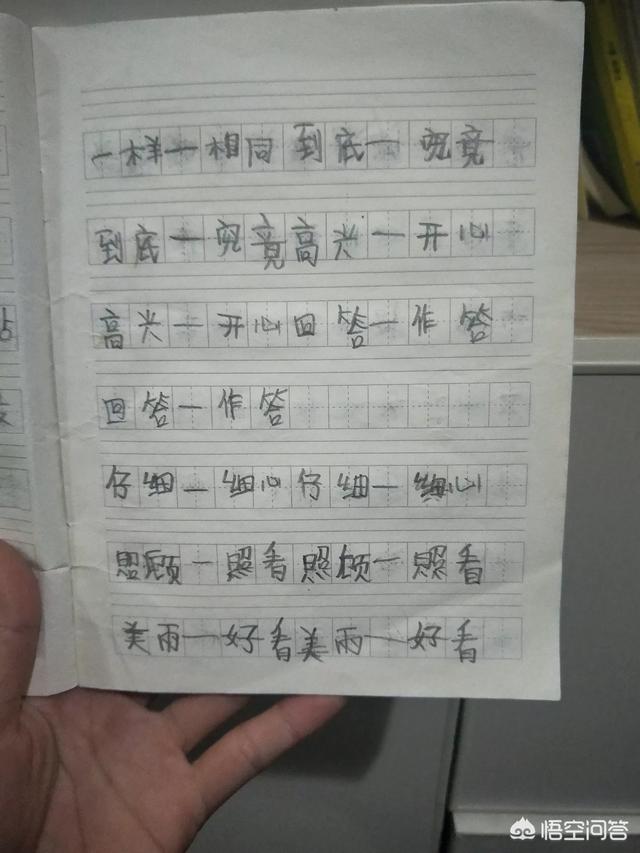 一样一相同 到底一究竟
到底一究竟高兴一开心
高兴一开心回答一作答
回答一作答
仔细一细心仔细一细心
照顾一照看照顾一照看
美雨一好看美雨一好看
悟空问答